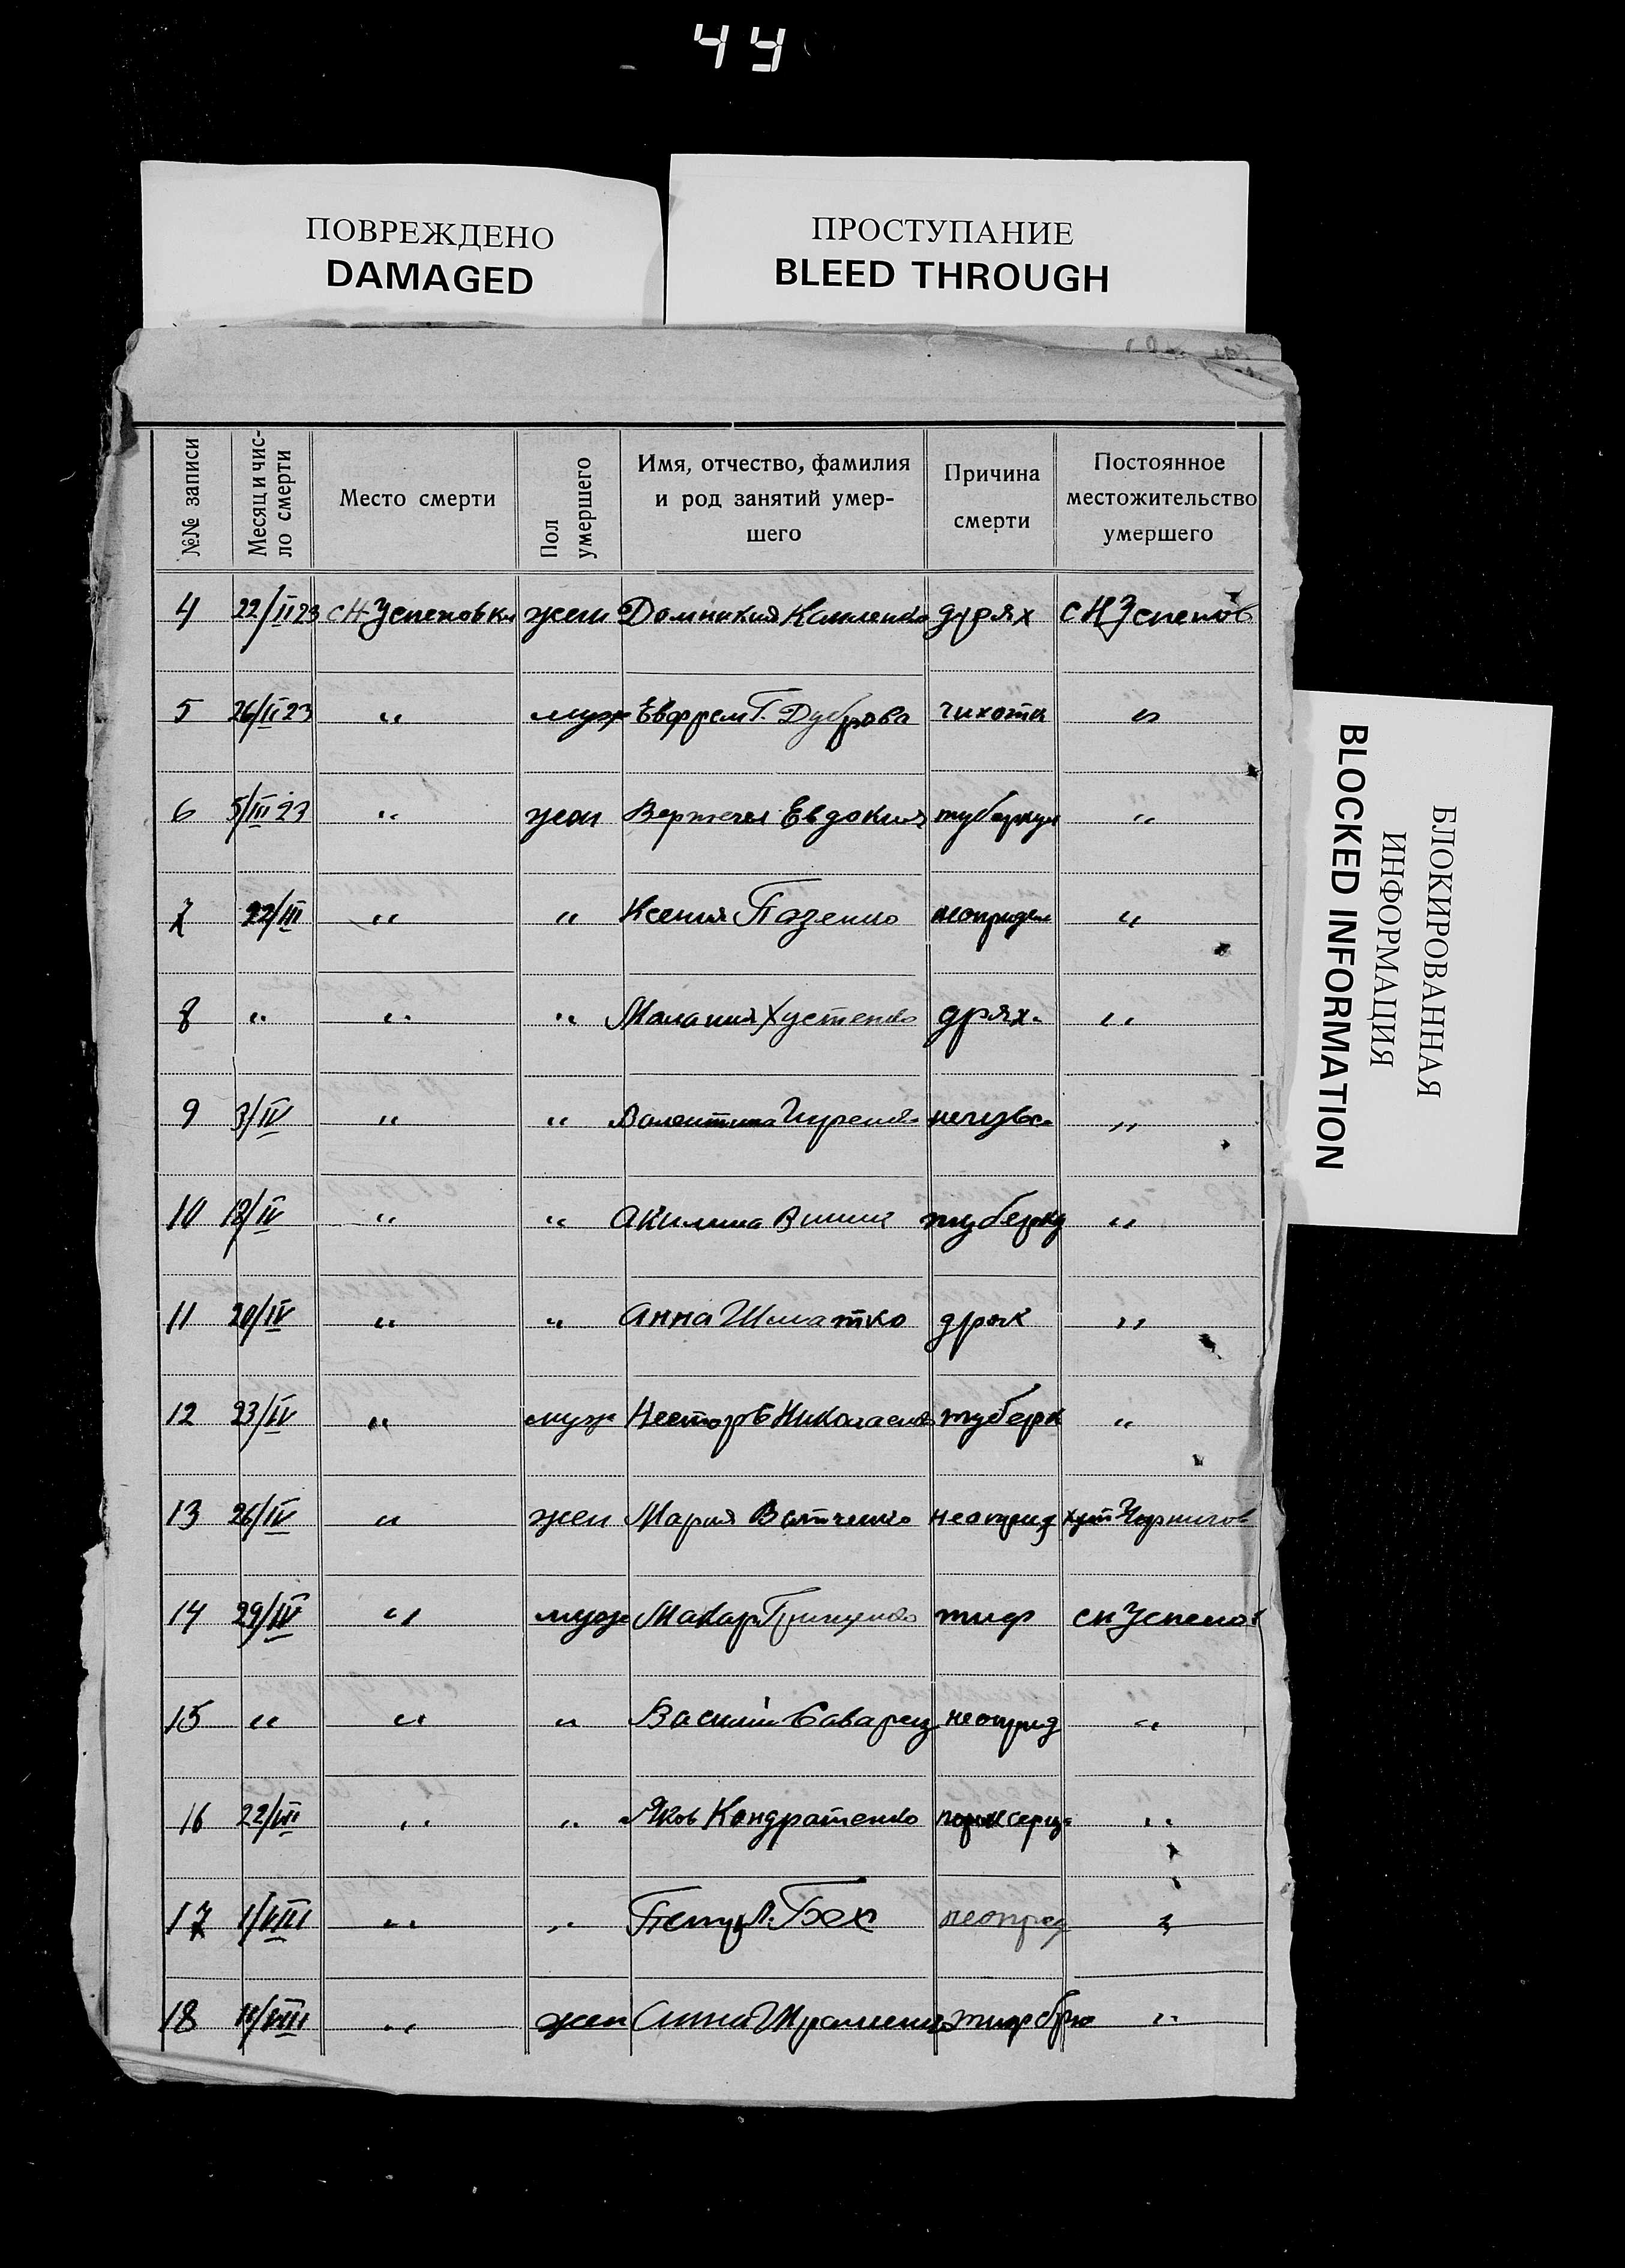 44
ПОВРЕЖДЕНО
DAMAGED
ПРОСТУПАНИЕ
BLEED THROUGH
БЛОКИРОВАННАЯ
ИНФОРМАЦИЯ
BLOCKED INFORMATION
№№ записи
Месяц и чис-
ло смерти
Место смерти
Пол
умершего
Имя, отчество, фамилия
и род занятий умер-
шего
Причина
смерти
Постоянное
местожительство
умершего
4 22/II 23 с Н Успеновки жен Домникия дрях с Н Успенов
5 26/II 23 " муж Евфрем Г. Дуброва чихотка "
6 5/III 23 " жен Евдокия туберкул "
7 22/III " " Ксения Пазенко неопридел "
8 " " " Малания Хустенко дрях. "
9 3/IV " " Валентина "
10 18/IV " " Акилина туберку "
11 20/IV " " Анна Шматко дрях "
12 23/IV " муж Нестор Николаенко туберк "
13 26/IV " жен Мария неоприд хут
14 29/IV " муж Макар Грищенко тиф с н Успенов
15 " " " Василий Саварец неоприд "
16 22/VII " " Яков Кондратенко порок серц. "
17 1/VIII " " Петр Л. Бех неопред "
18 11/VIII " жен Анна тиф брю "